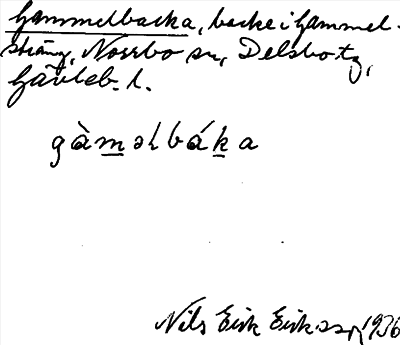 Gammelbacka, backe i Gammel-
sträng, Norrbo sn, Delsbo tg,
Gävleb. l.
gàməlbáka
Nils Eirk Eriksson 1936